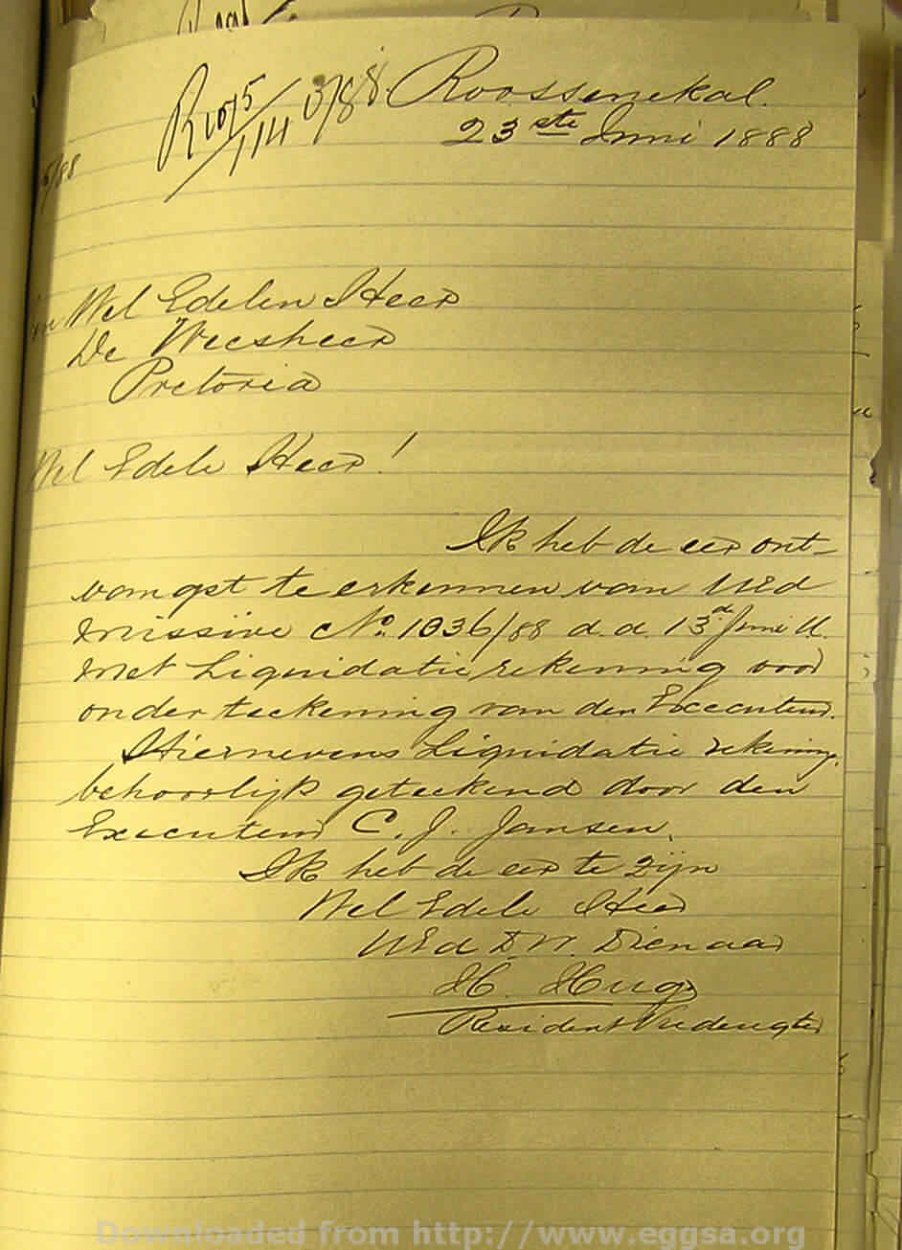 R1015/114 13/88 Roossenekal.
23ste Juni 1888
5/88
Wel Edelen Heer
De Weesheer
Pretoria
Wel Edele Heer!
Ik heb de eer ont-
vangst te erkennen van UEd
missive No. 1036/88 d.d. 13de Juni ll.
met Liquidatie rekenning voor
onderteekenning van den Executeur.
Hiernevens Liquidatie rekening.
behoorlijk geteekend door den
Executeur C. J. Jansen.
Ik heb de eer te zijn
Wel Edele Heer
UEd D.W. Dienaar
H. Hugo
Resident Vrederegter
Downloaded from http://www.eggsa.org